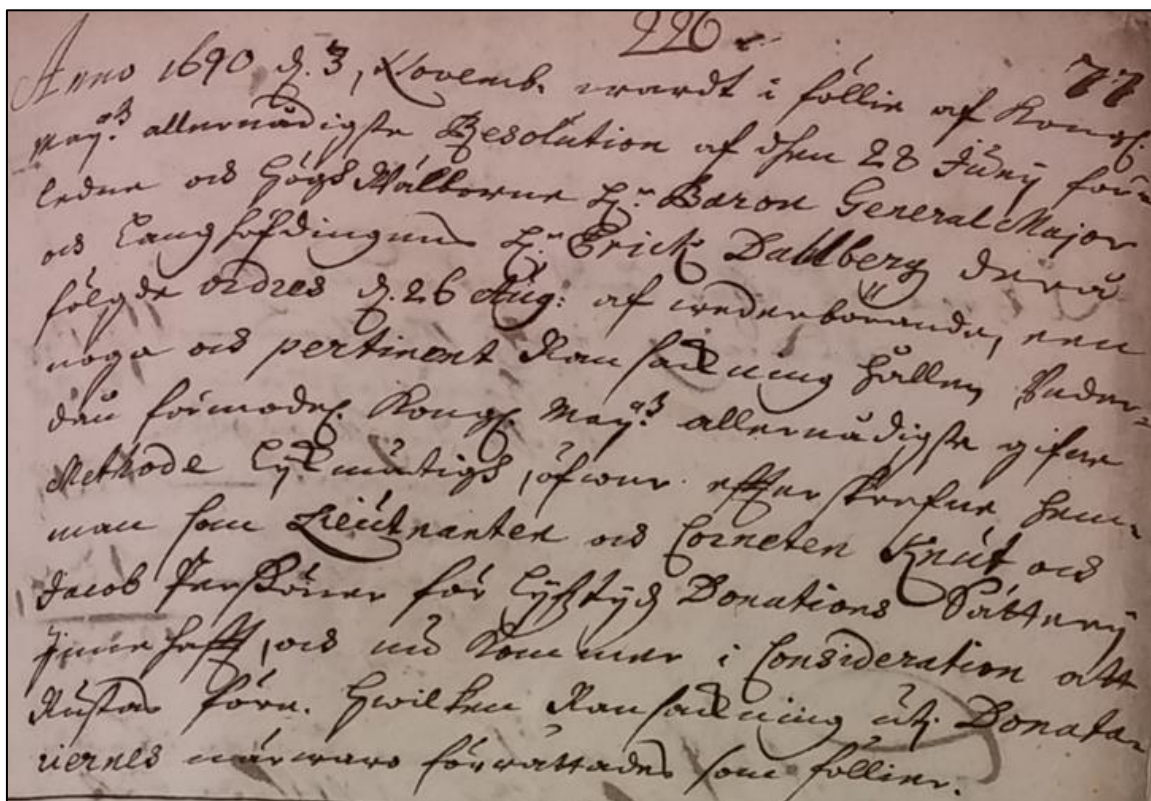 226
77
Anno 1690 d. 3, Novemb. wardt i föllie af Kongl.
May:tz allernådigste Resolution af dhen 28 Juny förr
ledne och högh Wälborne Hr: Baron General Major
och Landshöfdingens Hr: Erick Dahlberg derå
fölgde ordres d. 26 Aug: af wederbörande, een
noga och pertinent Ransackning hållen Under-
dån förmodel. Kongl. May:tz allernådigste gifne
Methode lijkmätigh, öfwer efterskrefne hem-
man som Lieutnanten och Corneten Knut och
Jacob Perssöner för lijfstijdz Donations Sätterij
Innehafft, och nu kommer i Consideration att
Rustas före. Hwilken Ransackning uti Donata-
riernes närwaro förrättades som föllier.